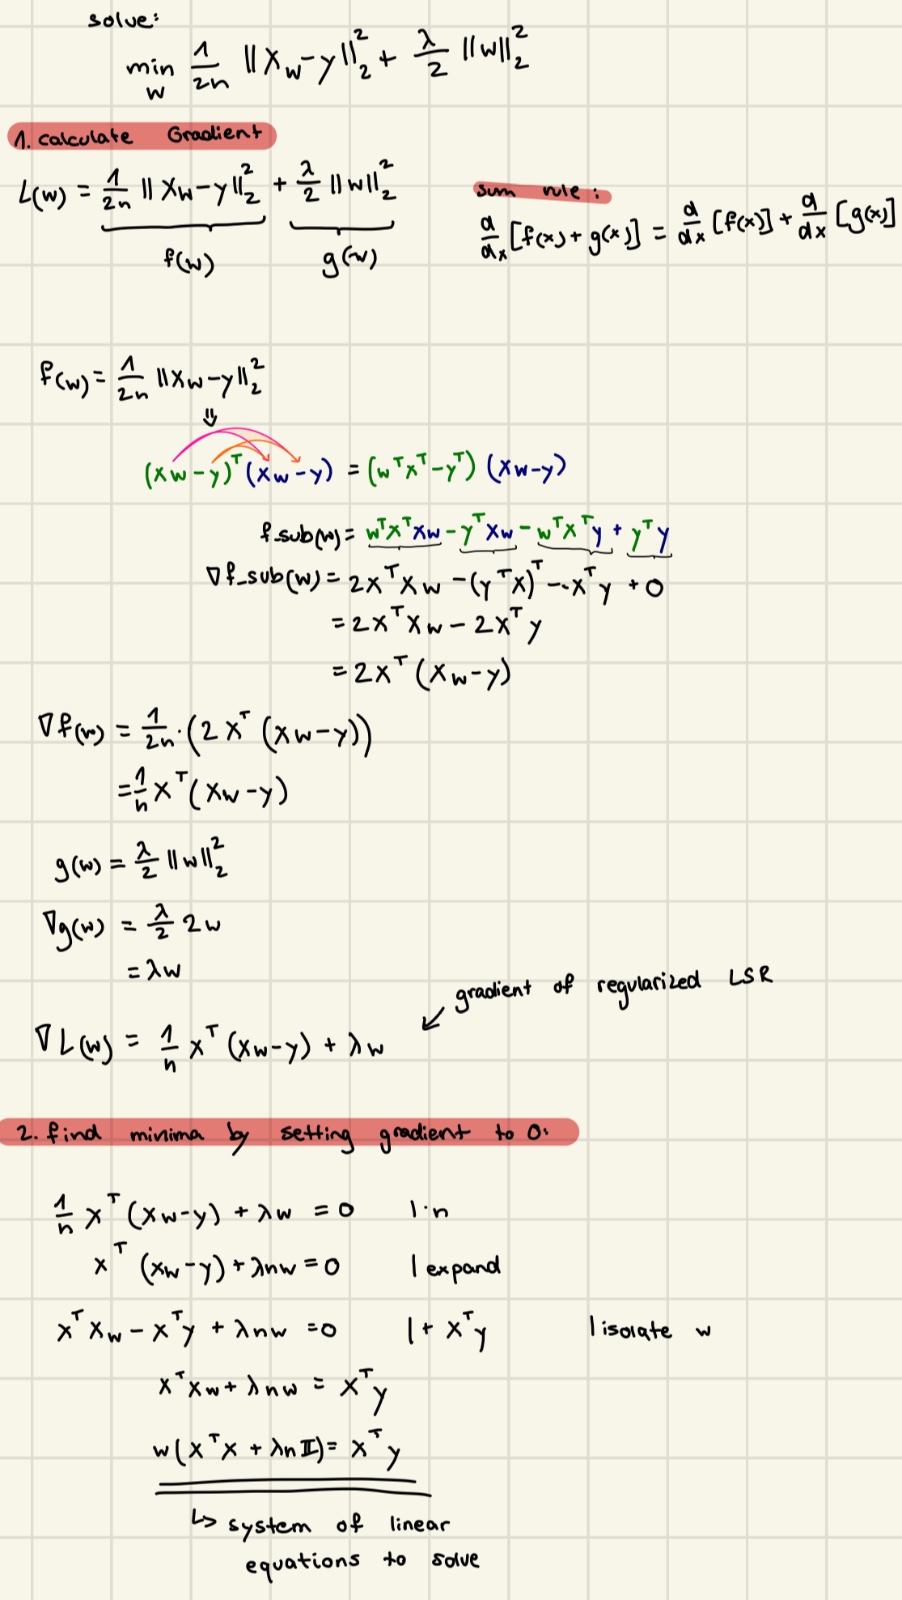 solve:
min_w 1/2n ||Xw-y||₂² + λ/2 ||w||₂²
1. calculate Gradient
L(w) = 1/2n ||Xw-y||₂² + λ/2 ||w||₂²
f(w) g(w)
sum rule:
d/dx [f(x) + g(x)] = d/dx [f(x)] + d/dx [g(x)]
f(w) = 1/2n ||Xw-y||₂²
⇓
(Xw-y)ᵀ (Xw-y) = (wᵀXᵀ-yᵀ) (Xw-y)
f_sub(w) = wᵀXᵀXw - yᵀXw - wᵀXᵀy + yᵀy
∇f_sub(w) = 2XᵀXw - (yᵀX)ᵀ - Xᵀy + 0
= 2XᵀXw - 2Xᵀy
= 2Xᵀ (Xw-y)
∇f(w) = 1/2n · (2Xᵀ (Xw-y))
= 1/n Xᵀ (Xw-y)
g(w) = λ/2 ||w||₂²
∇g(w) = λ/2 2w
= λw
gradient of regularized LSR
↙
∇L(w) = 1/n Xᵀ (Xw-y) + λw
2. find minima by setting gradient to 0:
1/n Xᵀ (Xw-y) + λw = 0 |·n
Xᵀ (Xw-y) + λnw = 0 | expand
XᵀXw - Xᵀy + λnw = 0 |+ Xᵀy | isolate w
XᵀXw + λnw = Xᵀy
w(XᵀX + λnI) = Xᵀy
↳ system of linear
equations to solve